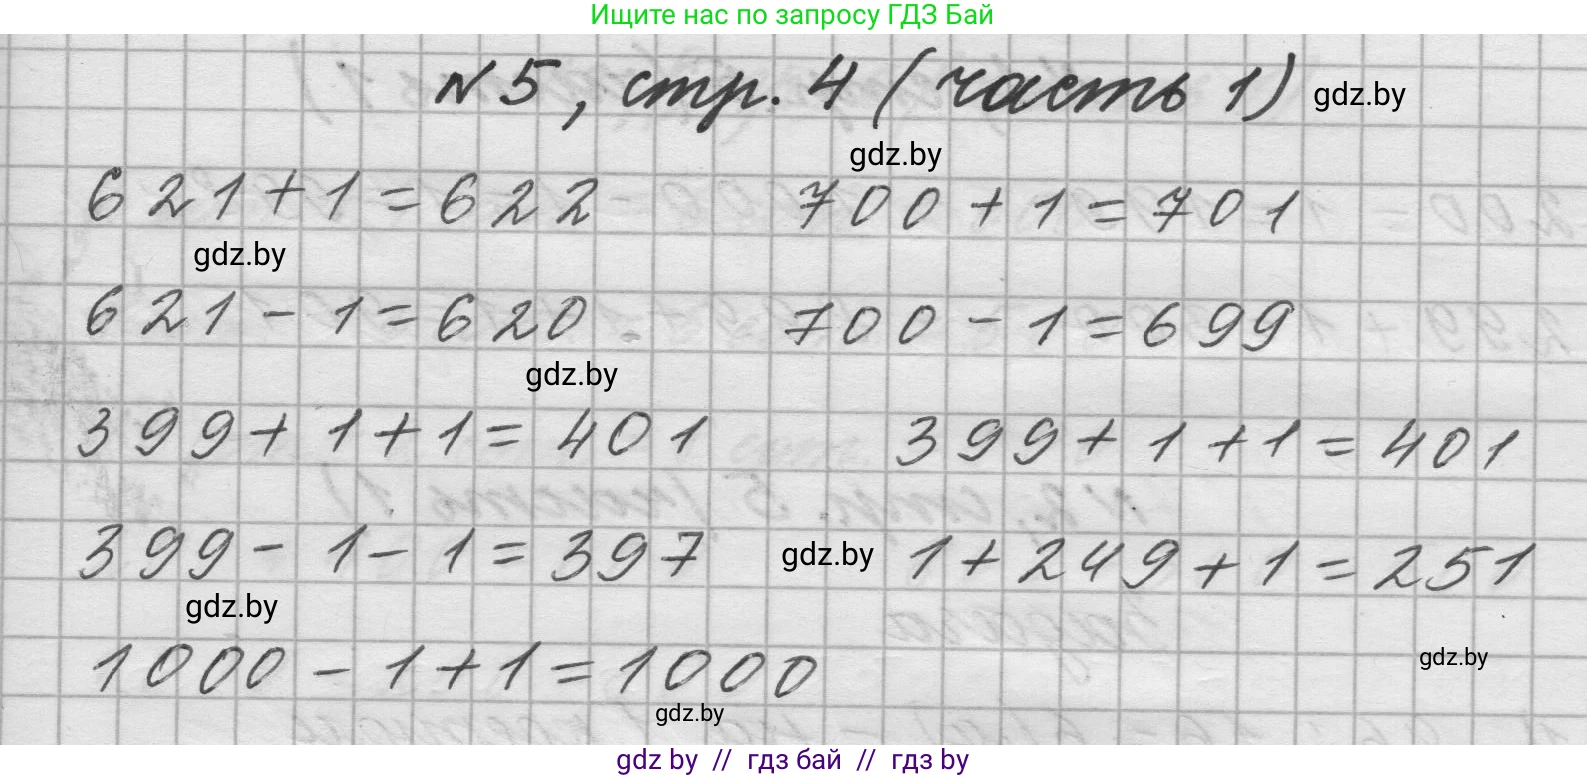 Ищите нас по запросу ГДЗ Бай
№5, стр. 4 (часть 1) gdz.by
gdz.by
621+1=622 700+1=701
gdz.by
621-1=620 700-1=699
gdz.by
399+1+1=401 399+1+1=401
399-1-1=397 gdz.by 1+249+1=251
gdz.by
1000-1+1=1000 gdz.by
gdz.by
gdz by // гдз бай // гдз by